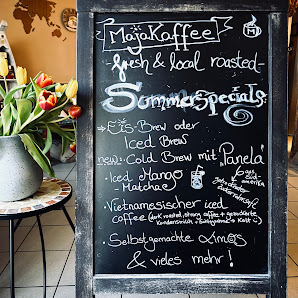 MajaKaffee
- fresh & local roasted -
Sommerspecials
• Eis-Brew oder
Iced Brew
new: • Cold Brew mit "Panela"
• Iced Mango
-Matcha
• Vietnamesischer iced
coffee (dark roasted, strong coffee + gezuckerte
Kondensmilch
• Selbstgemachte Limos
& vieles mehr!